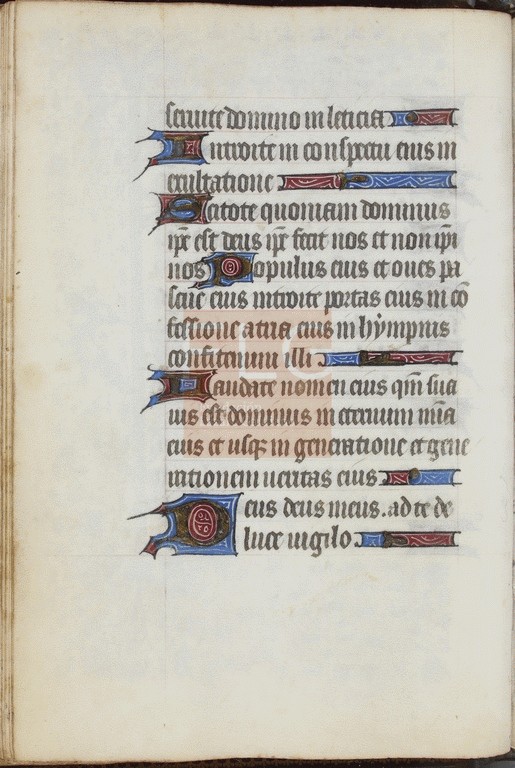 seruite domino in leticia
Introite in conspectu eius in
exultatione
Scitote quoniam dominus
ip̄e est deus ip̄e fecit nos et non ip̄i
nos Populus eius et oues pa
scue eius introite portas eius in cō
fessione atria eius in hympnis
confitemini illi
Laudate nomen eius qm̄ sua
uis est dominus in eternum mīa
eius et usq̄ in generatione et gene
rationem ueritas eius
Deus deus meus. ad te de
luce uigilo